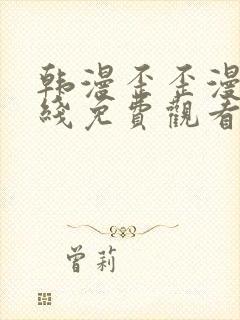 韩漫歪歪漫
线免費觀看
曾莉